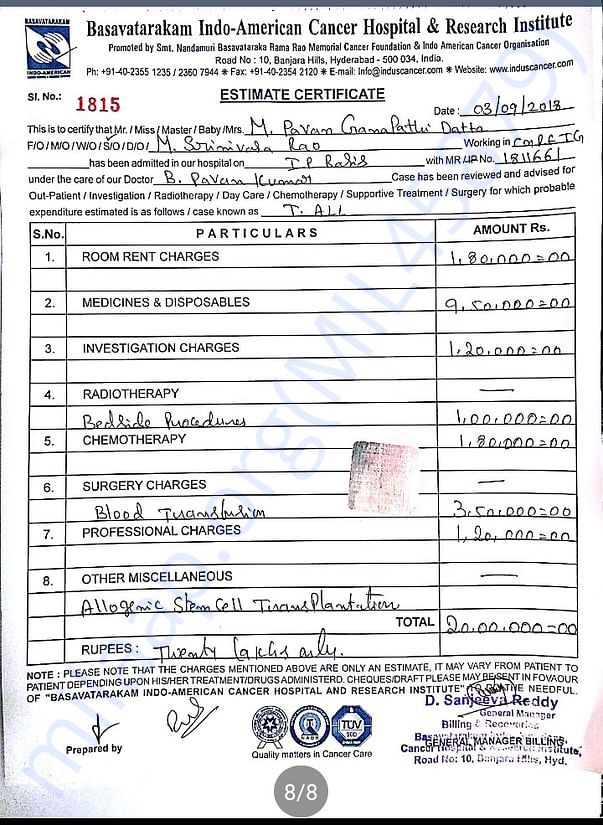 BASAVATARAKAM
INDO-AMERICAN
Basavatarakam Indo-American Cancer Hospital & Research Institute
Promoted by Smt. Nandamuri Basavataraka Rama Rao Memorial Cancer Foundation & Indo American Cancer Organisation
Road No : 10, Banjara Hills, Hyderabad - 500 034, India.
Ph: +91-40-2355 1235 / 2360 7944 ✱ Fax: +91-40-2354 2120 ✱ E-mail: Info@induscancer.com ✱ Website: www.induscancer.com
Sl. No.: 1815
ESTIMATE CERTIFICATE
Date : 03/09/2018
This is to certify that Mr. / Miss / Master / Baby/Mrs. M. Pavan Ganapathi Datta
F/O / M/O / W/O / S/O / D/O / M. Srinivasa Rao Working in CMPFIG
has been admitted in our hospital on IP Basis with MR / IP No. 1811661
under the care of our Doctor B. Pavan Kumar Case has been reviewed and advised for
Out-Patient / Investigation / Radiotherapy / Day Care / Chemotherapy / Supportive Treatment / Surgery for which probable
expenditure estimated is as follows / case known as T. ALL
S.No. PARTICULARS AMOUNT Rs.
1. ROOM RENT CHARGES 1,80,000=00
2. MEDICINES & DISPOSABLES 9,50,000=00
3. INVESTIGATION CHARGES 1,20,000=00
4. RADIOTHERAPY —
Bedside Procedures 1,00,000=00
5. CHEMOTHERAPY 1,80,000=00
6. SURGERY CHARGES —
Blood Transfusion 3,50,000=00
7. PROFESSIONAL CHARGES 1,20,000=00
8. OTHER MISCELLANEOUS —
Allogenic Stem Cell Transplantation
TOTAL 20,00,000=00
RUPEES : Twenty lakhs only.
NOTE : PLEASE NOTE THAT THE CHARGES MENTIONED ABOVE ARE ONLY AN ESTIMATE, IT MAY VARY FROM PATIENT TO
PATIENT DEPENDING UPON HIS/HER TREATMENT/DRUGS ADMINISTERD. CHEQUES/DRAFT PLEASE MAY BE SENT IN FOVAOUR
OF "BASAVATARAKAM INDO-AMERICAN CANCER HOSPITAL AND RESEARCH INSTITUTE" TO THE NEEDFUL.
D. Sanjeeva Reddy
General Manager
Billing & Recoveries
Basavatarakam
GENERAL MANAGER BILLING
Cancer Hospital & Research Institute,
Road No: 10, Banjara Hills, Hyd.
Prepared by
NABH
TUV
Quality matters in Cancer Care
milaap.org(MIL45279)
8/8